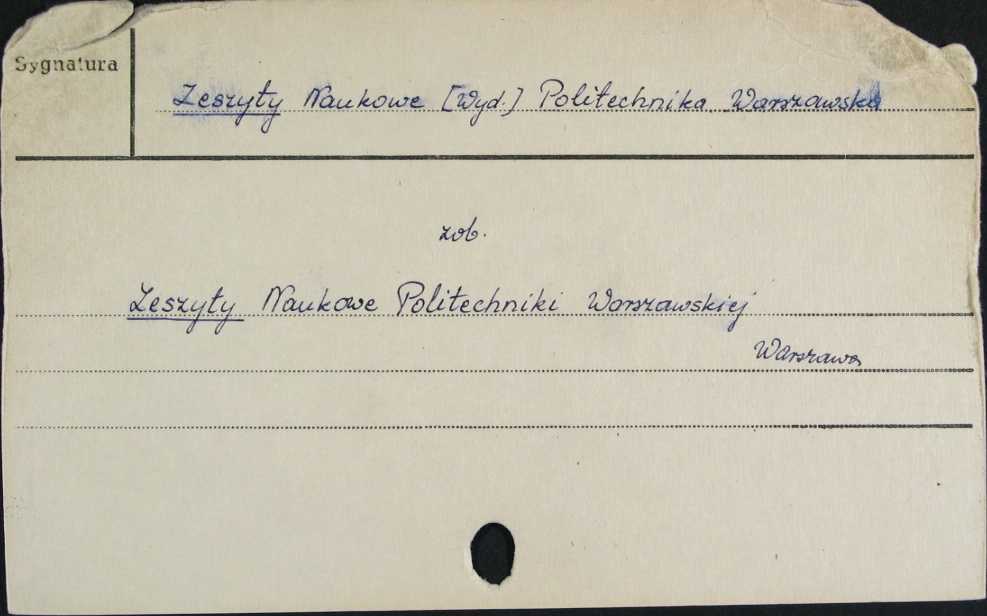 Sygnatura
Zeszyty Naukowe [Wyd.] Politechnika Warszawska
zob.
Zeszyty Naukowe Politechniki Warszawskiej
Warszawa